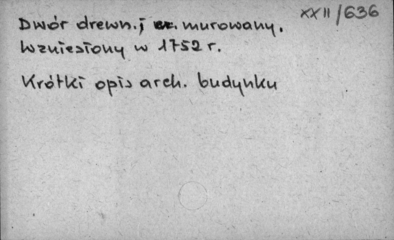 XXII/636
Dwór drewn. j murowany.
Wzniesiony w 1752 r.
Krótki opis arch. budynku